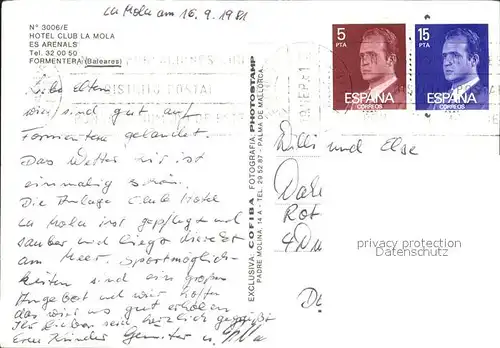 La Mola am 16.9.1981
Nº 3006/E
HOTEL CLUB LA MOLA
ES ARENALS
Tel. 32 00 50
FORMENTERA (Baleares)
5
PTA
ESPAÑA
CORREOS
15
PTA
ESPAÑA
CORREOS
Liebe Eltern
wir sind gut auf
Formentera gelandet.
Das Wetter hier ist
einmalig schön.
Die Anlage Club Hotel
La Mola ist gepflegt und
sauber und liegt direkt
am Meer. Sportmöglich-
keiten sind ein großes
Angebot und wir hoffen
das wir uns gut erholen
Ihr lieben seid herzlich gegrüßt
Eure Kinder Günter u.
EXCLUSIVA: COFIBA FOTOGRAFIA: PHOTOSTAMP
PADRE MOLINA, 14 A - TEL. 29 52 87 - PALMA DE MALLORCA.
Willi und Else
Rot
privacy protection
Datenschutz